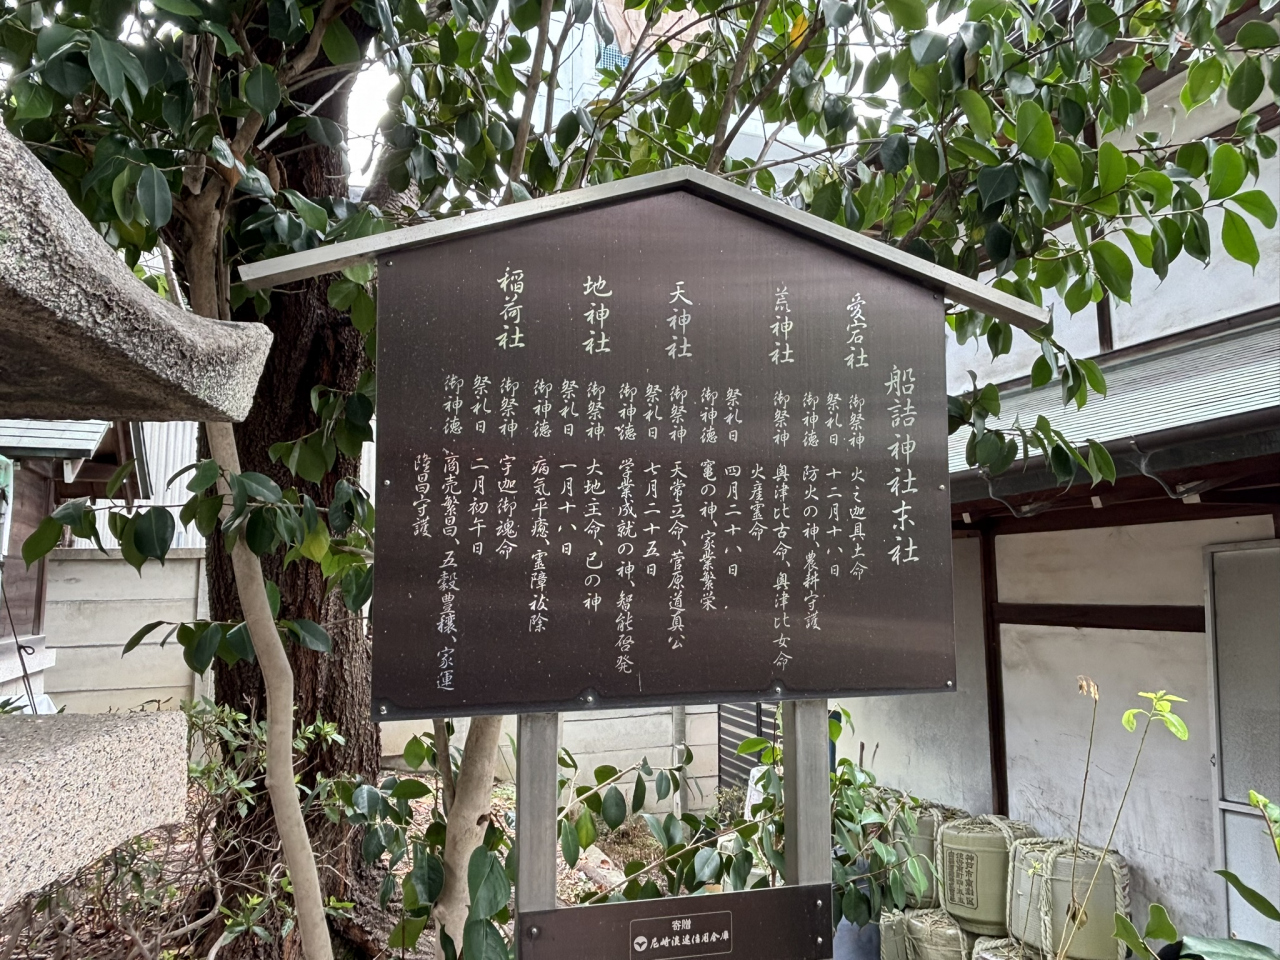 船詰神社末社
愛宕社
御祭神 火之迦具土命
祭礼日 十二月十八日
御神徳 防火の神、農耕守護
荒神社
御祭神 奥津比古命、奥津比女命
火産霊命
祭礼日 四月二十八日
御神徳 竈の神、家業繁栄
天神社
御祭神 天常立命、菅原道真公
祭礼日 七月二十五日
御神徳 学業成就の神、智能啓発
地神社
御祭神 大地主命、巳の神
祭礼日 一月十八日
御神徳 病気平癒、霊障祓除
稲荷社
御祭神 宇迦御魂命
祭礼日 二月初午日
御神徳 商売繁昌、五穀豊穣、家運
隆昌守護
寄贈
尼崎浪速信用金庫